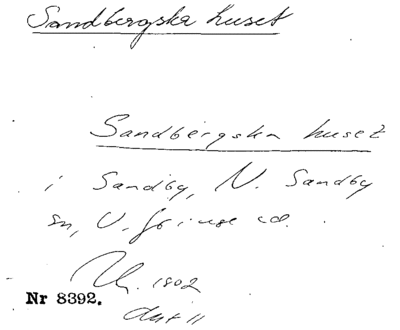 Sandbergska huset
Sandbergska huset
i Sandby, N. Sandby
sn, V. Göinge hd.
1802
Nr 8392.